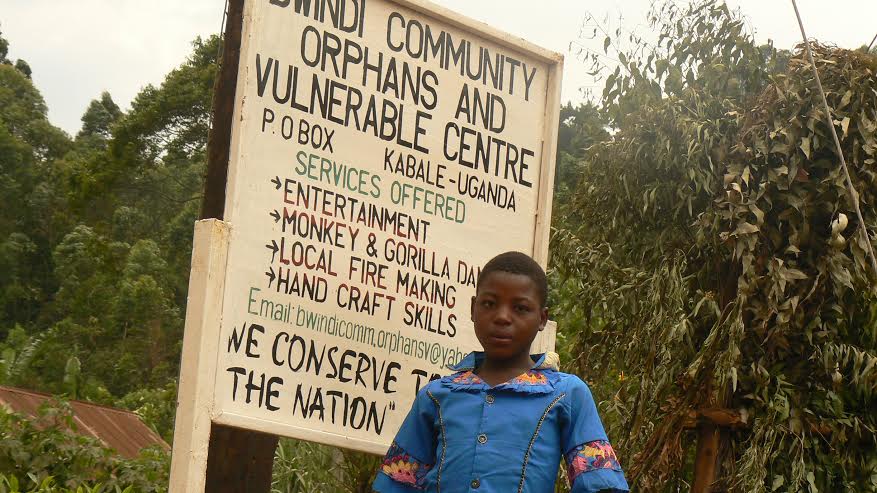 BWINDI COMMUNITY
ORPHANS AND
VULNERABLE CENTRE
P.O BOX KABALE-UGANDA
SERVICES OFFERED
→ ENTERTAINMENT
→ MONKEY & GORILLA
→ LOCAL FIRE MAKING
→ HAND CRAFT SKILLS
Email: bwindicomm.orphansv@yaho
WE CONSERVE
THE NATION"